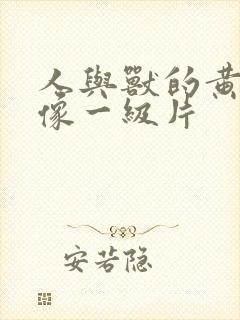 人與獸的黃
像一級片
安若隐